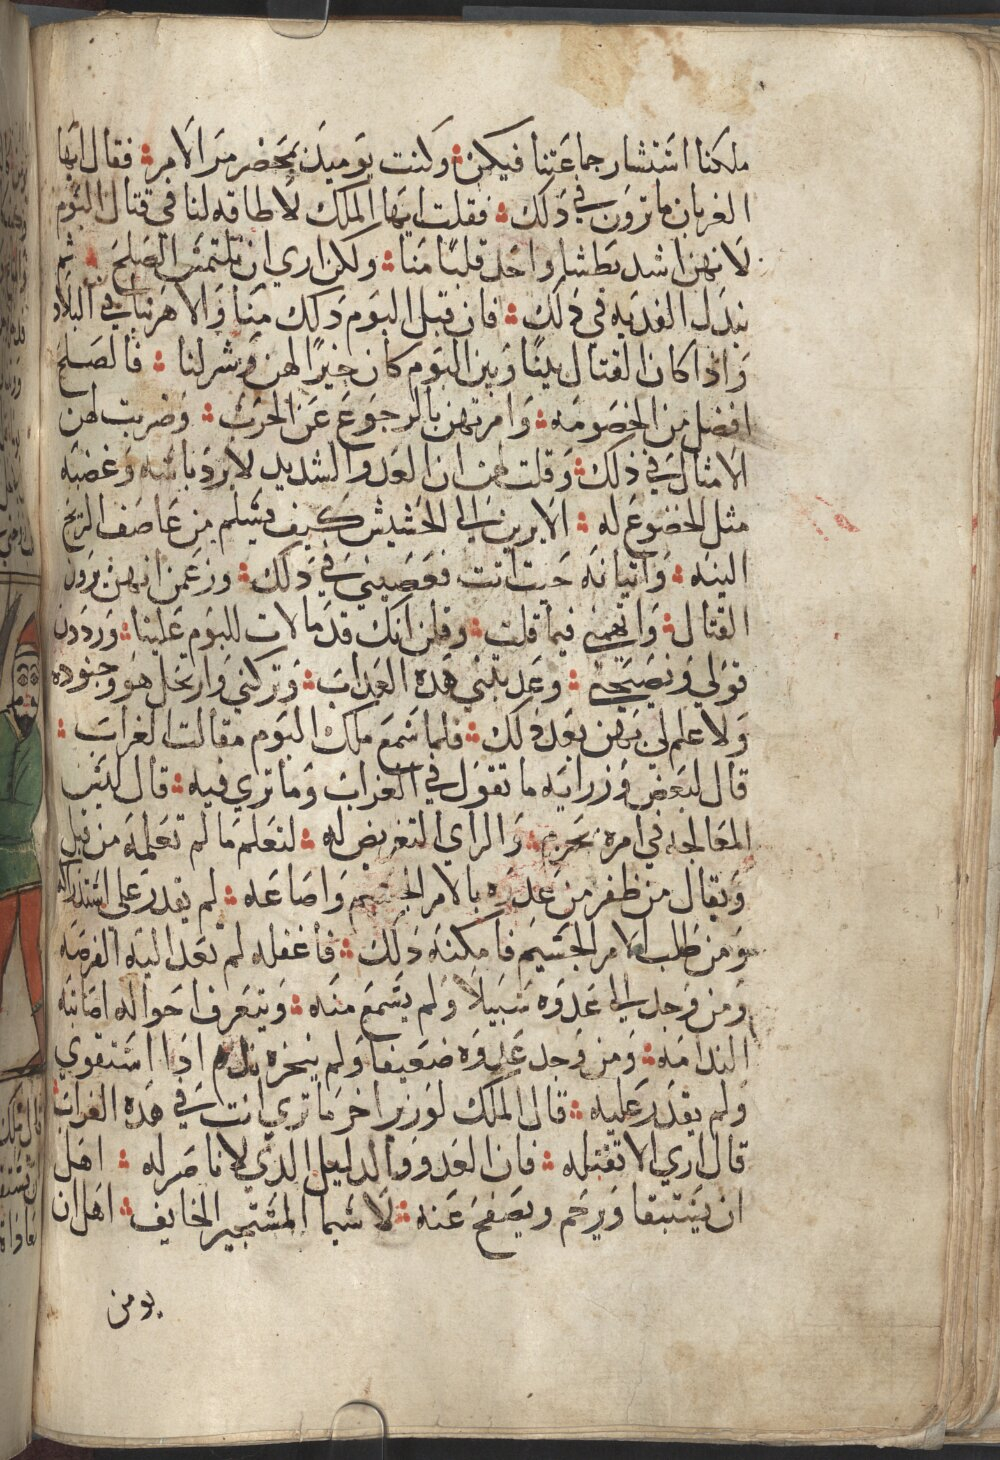 ملكنا استشار جماعتنا فيكن وكنت يوميذ بمحضر من الامر فقال ايها
الغربان ما ترون في ذلك فقلت ايها الملك لا طاقه لنا في قتال البوم
لانهن اشد بطشا واحد قلبا منا ولكن اري ان نلتمس الصلح ثم
نبدل الفديه في ذلك فان قبل البوم ذلك منا والا هربنا في البلاد
واذا كان القتال بيننا وبين البوم كان خيرا لهن وشر لنا فالصلح
افضل من الخصومه وامرتهن بالرجوع عن الحرب وضربت لهن
الامثال في ذلك وقلت لهن ان العدو الشديد لا يرد باسه وغضبه
مثل الخضوع له الا يرين الي الحشيش كيف يسلم من عاصف الريح
الينه واتيانه حيث اتت فعصينني في ذلك وزعمن انهن يرون
القتال واتهمني فيما قلت وقلن انك قد مالات للبوم علينا ورددن
قولي ونصيحتي وعذبنني هذه العذاب وتركني وارتحل هو وجنوده
ولا علم لي بهن بعد ذلك فلما سمع ملك البوم مقالت الغراب
قال لبعض وزرايه ما تقول في الغراب وما تري فيه قال ليس
المعالجه في امره بحزم والراي التعريض له لنعلم ما لم تعلمه من قبل
ويقال من ظفر من عدوه بالامر الجسيم واضاعه لم يقدر علي استدراكه
ومن طلب الامر الجسيم فامكنه ذلك فاغفله لم تعد اليه الفرصه
ومن وجد الي عدوه سبيلا ولم يسمع منه ويتعرف احواله اصابته
الندامه ومن وجد عدوه ضعيفا ولم ينجزه ندم اذا استقوي
ولم يقدر عليه قال الملك لوزر اخر ما تري انت في هذه الغراب
قال اري الا تقتله فان العدو والدليل الذي لا ناصر له اهل
ان يستبقا ويرحم ويصفح عنه لا سيما المستجير الخايف اهل ان
يومن